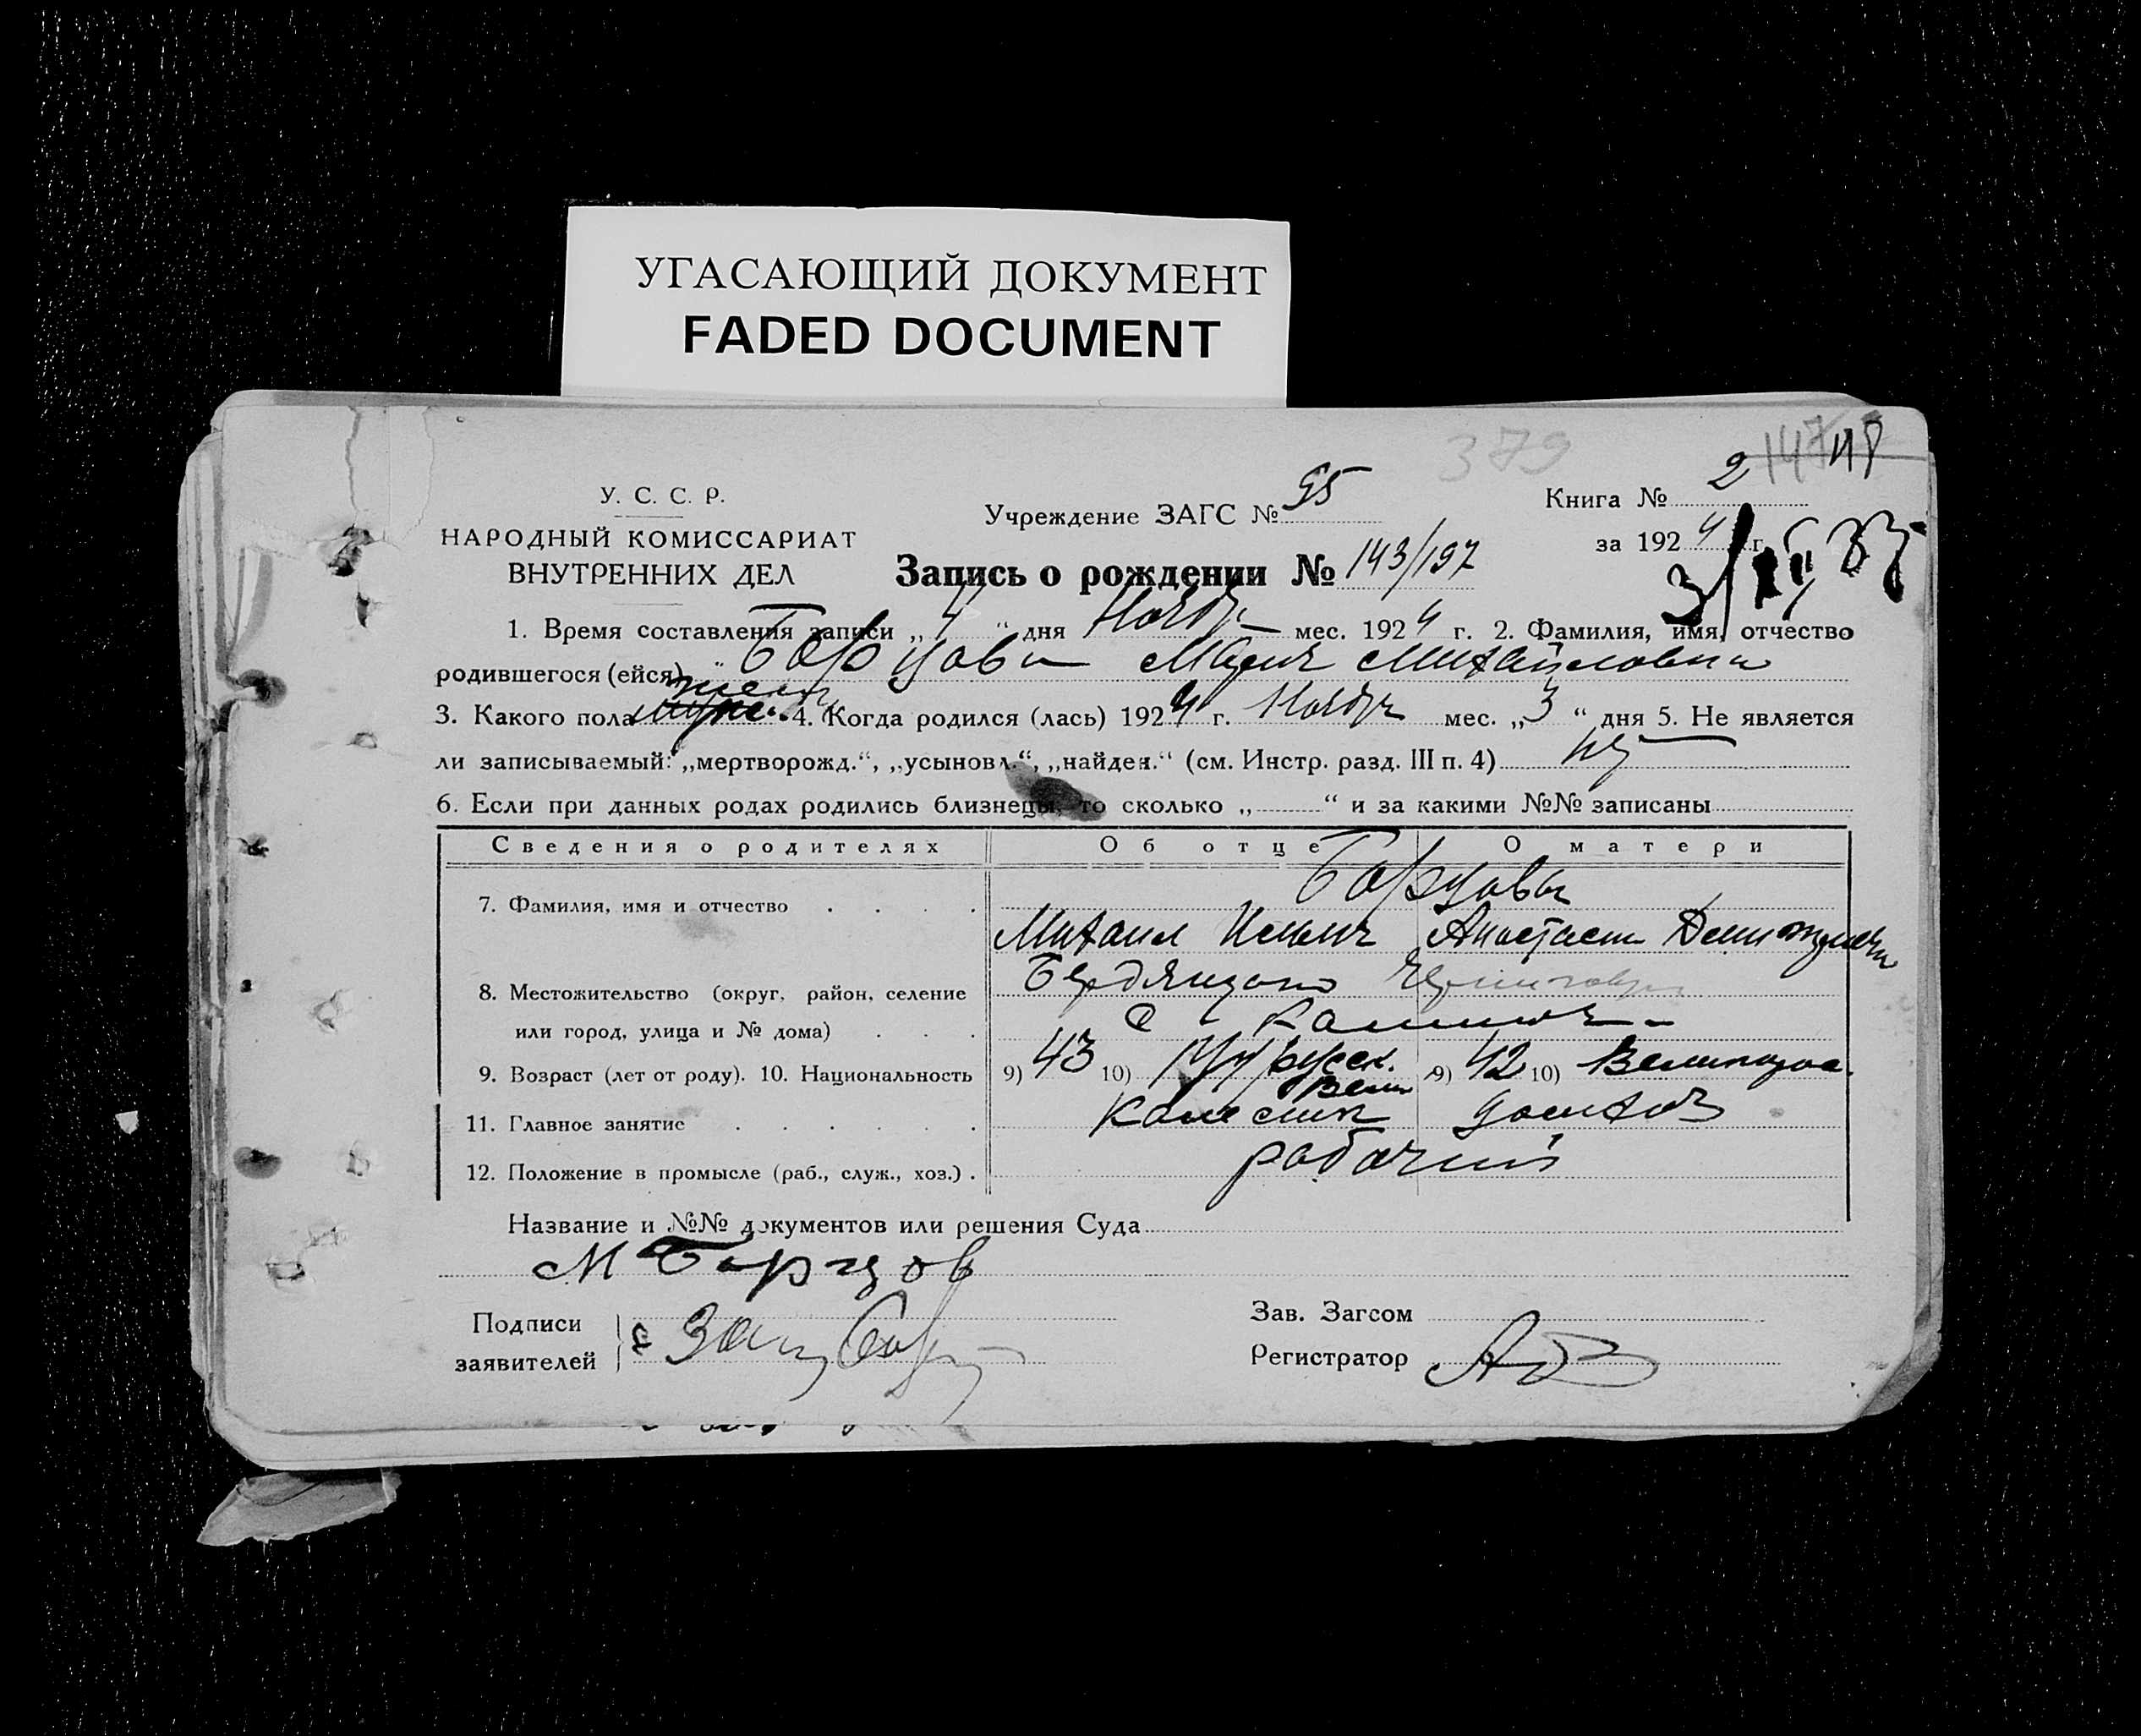 УГАСАЮЩИЙ ДОКУМЕНТ
FADED DOCUMENT
379
147 118
У. С. С. Р.
НАРОДНЫЙ КОМИССАРИАТ
ВНУТРЕННИХ ДЕЛ
Учреждение ЗАГС № 95
Книга № 2
за 1924 г.
Запись о рождении № 143/197
1. Время составления записи „ 4 “ дня Ноябр мес. 1924 г. 2. Фамилия, имя, отчество
родившегося (ейся) Борцова Мария Михайловна
женс
3. Какого пола муж. 4. Когда родился (лась) 1924 г. Ноябр мес. „ 3 “ дня 5. Не является
ли записываемый: „мертворожд.“, „усыновл.“, „найден.“ (см. Инстр. разд. III п. 4)
6. Если при данных родах родились близнецы, то сколько „ “ и за какими №№ записаны
Сведения о родителях Об отце О матери
Борцовы
7. Фамилия, имя и отчество
Михаил Анастасия
8. Местожительство (округ, район, селение
или город, улица и № дома)
9. Возраст (лет от роду). 10. Национальность 9) 43 10) русск. 9) 42 10)
Вели
11. Главное занятие домхоз
12. Положение в промысле (раб., служ., хоз.) рабочий
Название и №№ документов или решения Суда
М Борцов
Подписи
заявителей
Зав. Загсом
Регистратор